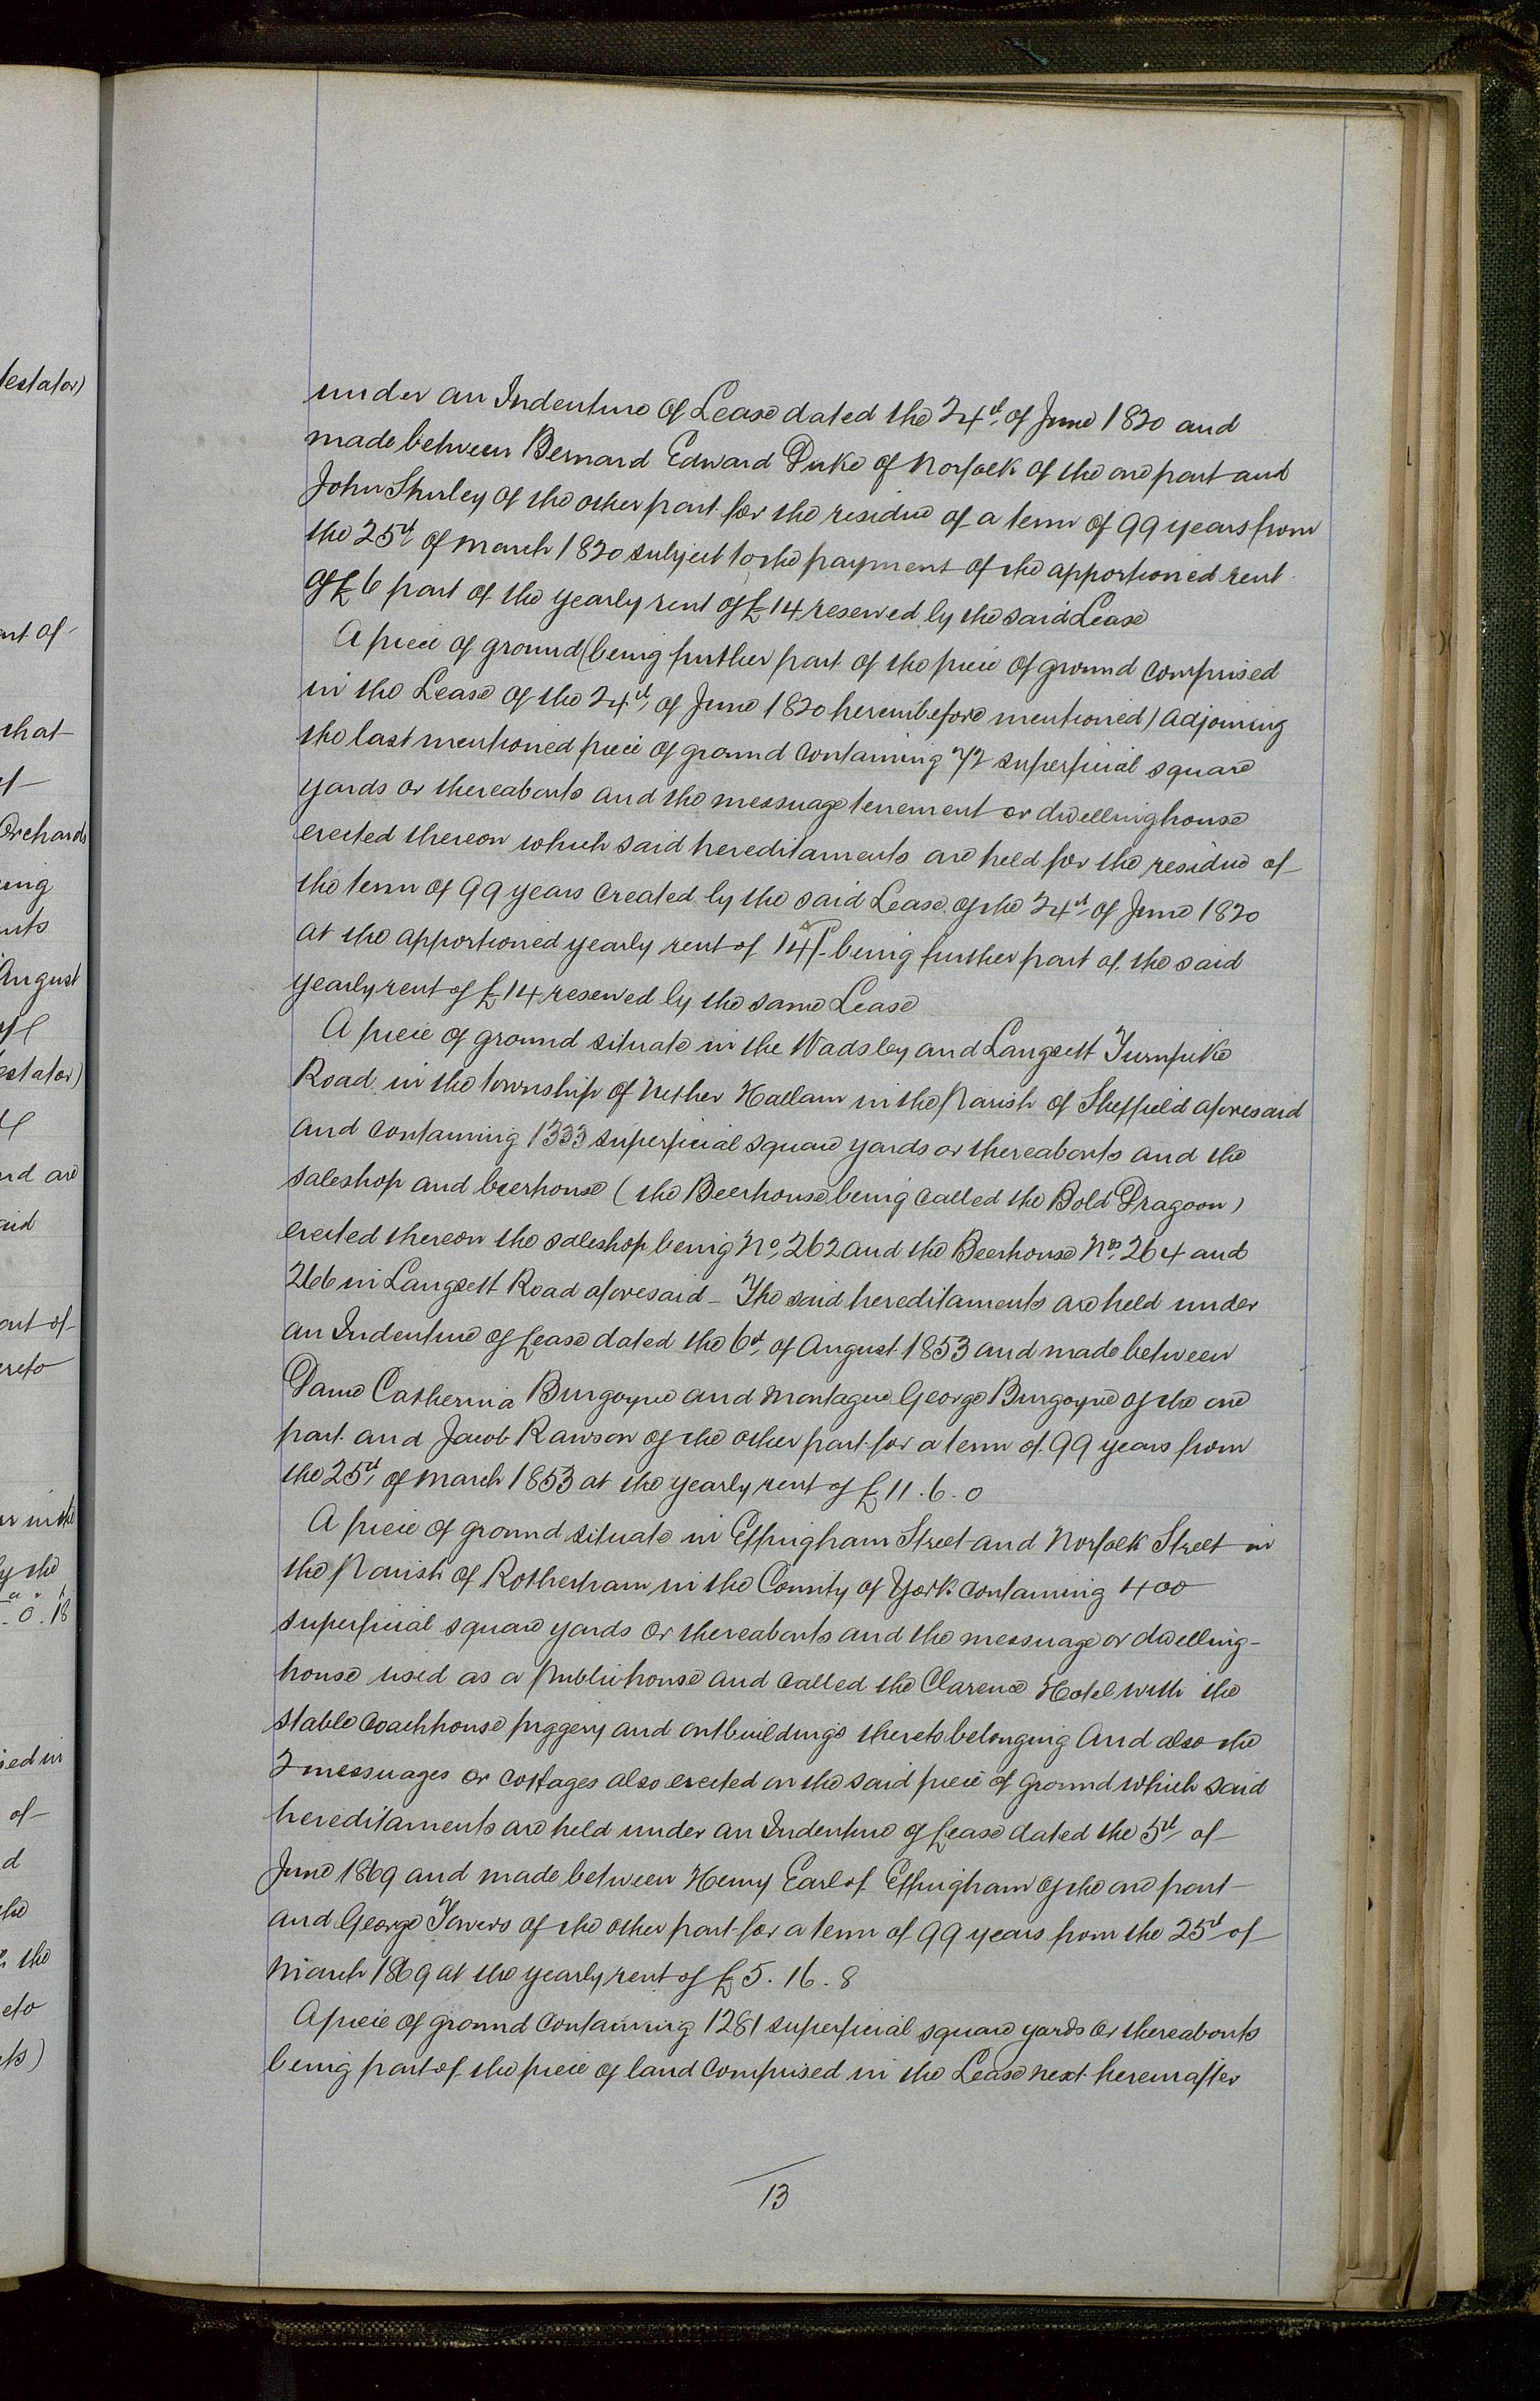 under an Indenture of Lease dated the 24th of June 1820 and
made between Bernard Edward Duke of Norfolk of the one part and
John Shirley of the other part for the residue of a term of 99 years from
the 25th of March 1820 subject to the payment of the apportioned rent
of £6 part of the yearly rent of £14 reserved by the said Lease
A piece of ground (being further part of the piece of ground comprised
in the Lease of the 24th of June 1820 hereinbefore mentioned) adjoining
the last mentioned piece of ground containing 72 superficial square
yards or thereabouts and the messuage tenement or dwellinghouse
erected thereon which said hereditaments are held for the residue of
the term of 99 years created by the said Lease of the 24th of June 1820
at the apportioned yearly rent of 14/- being further part of the said
yearly rent of £14 reserved by the same Lease
A piece of ground situate in the Wadsley and Langsett Turnpike
Road in the township of Nether Hallam in the Parish of Sheffield aforesaid
and containing 1333 superficial square yards or thereabouts and the
saleshop and beerhouse (the Beerhouse being called the Bold Dragoon)
erected thereon the saleshop being No. 262 and the Beerhouse Nos. 264 and
266 in Langsett Road aforesaid - The said hereditaments are held under
an Indenture of Lease dated the 6th of August 1853 and made between
Dame Catherina Burgoyne and Montague George Burgoyne of the one
part and Jacob Rawson of the other part for a term of 99 years from
the 25th of March 1853 at the yearly rent of £11.6.0
A piece of ground situate in Effingham Street and Norfolk Street in
the Parish of Rotherham in the County of York containing 400
superficial square yards or thereabouts and the messuage or dwelling-
house used as a Publichouse and called the Clarence Hotel with the
stable coachhouse piggery and outbuildings thereto belonging And also the
2 messuages or cottages also erected on the said piece of ground which said
hereditaments are held under an Indenture of Lease dated the 5th of
June 1869 and made between Henry Earl of Effingham of the one part
and George Towers of the other part for a term of 99 years from the 25th of
March 1869 at the yearly rent of £5.16.8
A piece of ground containing 1281 superficial square yards or thereabouts
being part of the piece of land comprised in the Lease next hereinafter
13